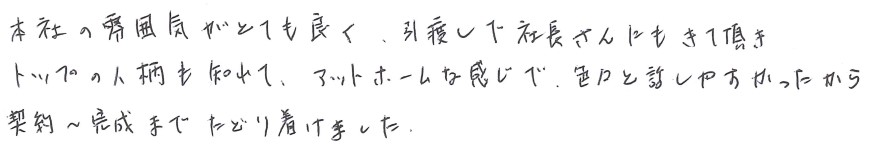 本社の雰囲気がとても良く、引渡しで社長さんにもきて頂き
トップの人柄も知れて、アットホームな感じで、色々と話しやすかったから
契約～完成までたどり着けました.